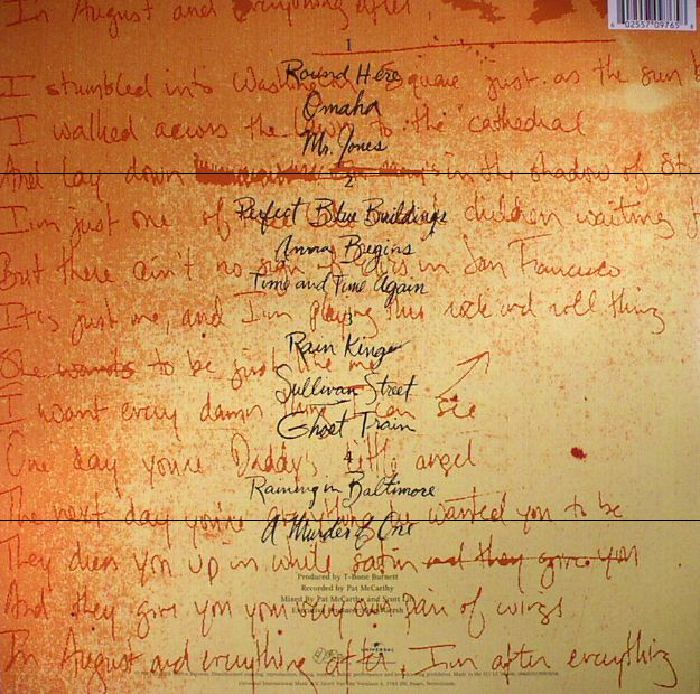 In August and everything after,
4 02557 09765
1
I stumbled into Washington Square just as the sun
Round Here
Omaha
I walked across the lawn to the cathedral
Mr. Jones
And lay down in the shadow of St.
2
I'm just one of children waiting
Perfect Blue Buildings
Anna Begins
But there ain't no sign in San Francisco
Time and Time Again
It's just me, and I'm playing this rock and roll thing
3
Rain King
She wants to be just like me
Sullivan Street
I want every damn thing I can see
Ghost Train
One day you're Daddy's little angel
4
Raining in Baltimore
The next day you're everything he wanted you to be
A Murder of One
They dress you up in white satin and they give you
Produced by T-Bone Burnett
Recorded by Pat McCarthy
Mixed by Pat McCarthy and Scott Litt
And they give you your very own pair of wings
UNIVERSAL
In August and everything after, I'm after everything